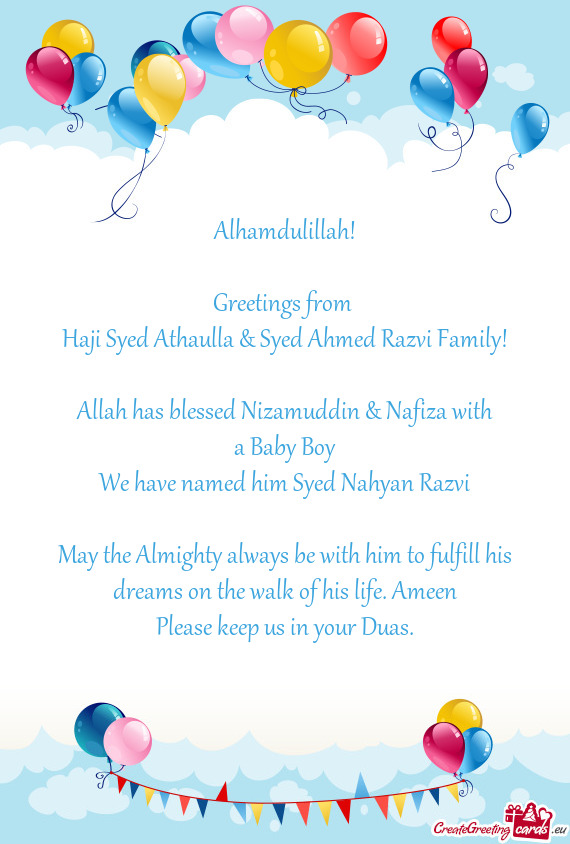 Alhamdulillah!
Greetings from
Haji Syed Athaulla & Syed Ahmed Razvi Family!
Allah has blessed Nizamuddin & Nafiza with
a Baby Boy
We have named him Syed Nahyan Razvi
May the Almighty always be with him to fulfill his
dreams on the walk of his life. Ameen
Please keep us in your Duas.
CreateGreetingcards.eu